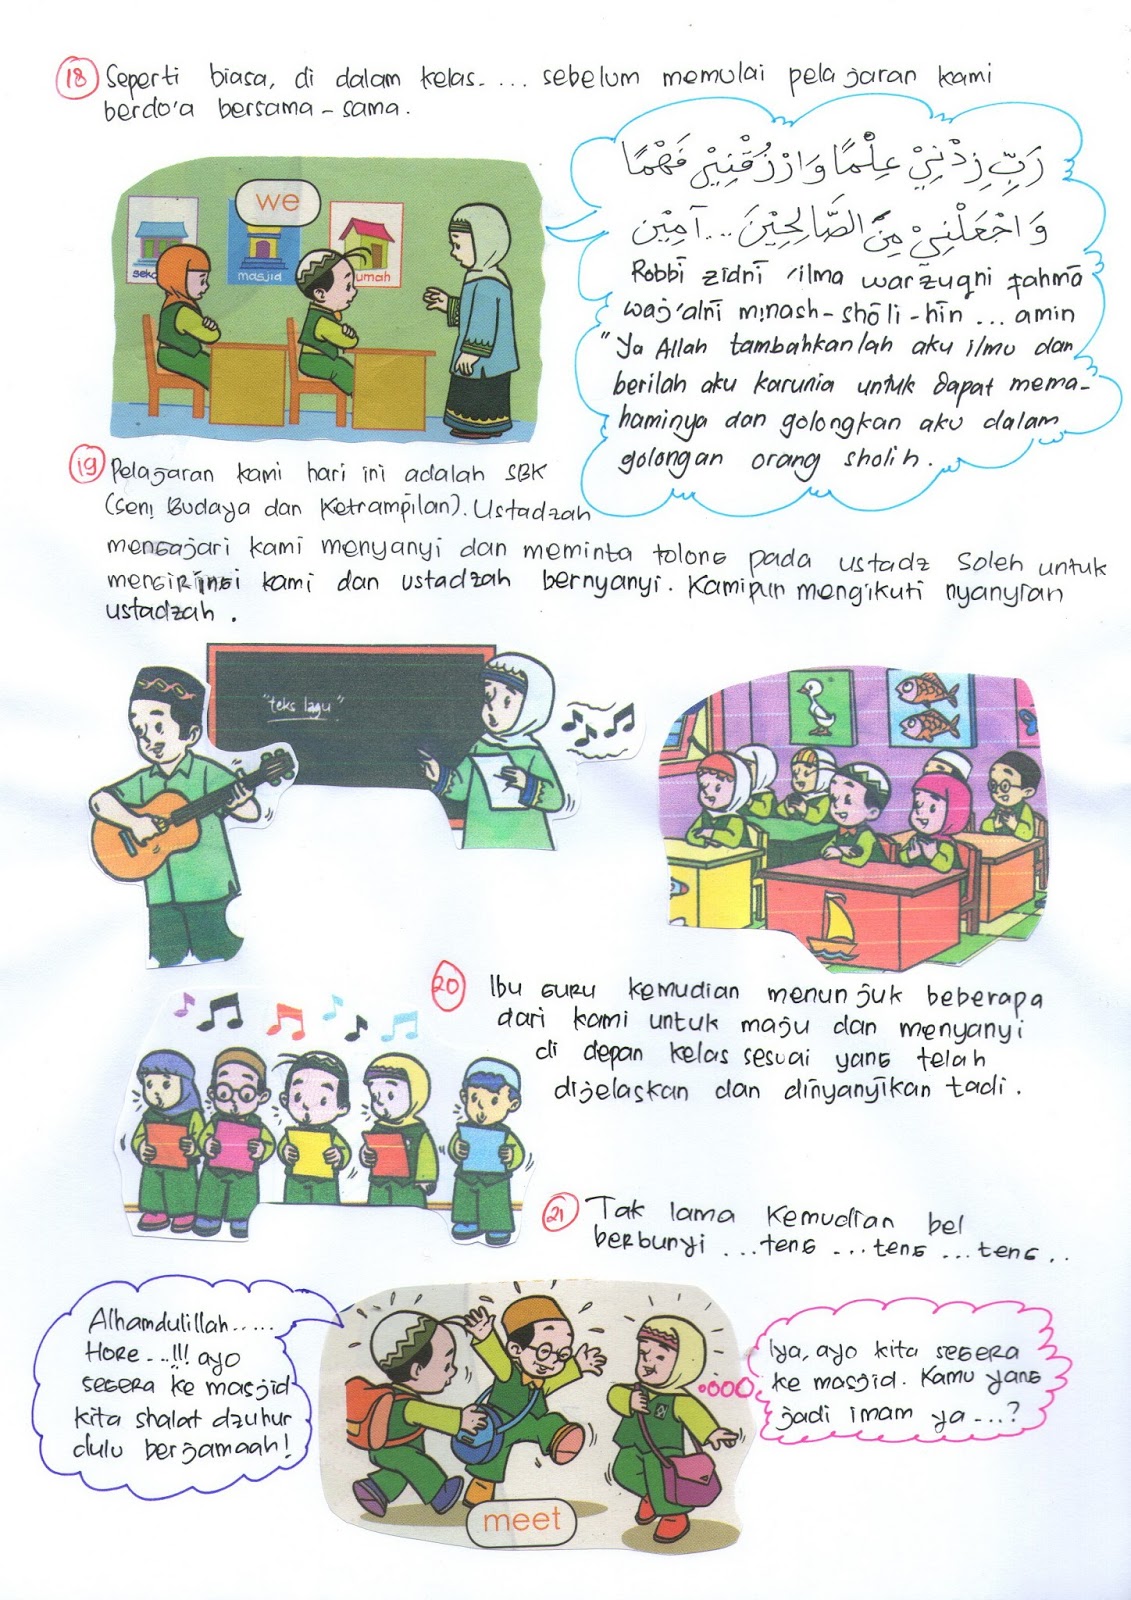 18 Seperti biasa, di dalam kelas.... sebelum memulai pelajaran kami
berdo'a bersama-sama.
we
seko
masjid
umah
رَبِّ زِدْنِيْ عِلْمًا وَارْزُقْنِيْ فَهْمًا
وَاجْعَلْنِيْ مِنَ الصَّالِحِيْنَ... آمِيْن
Robbī zidnī 'ilma warzuqni fahmā
waj'alnī minash-shōli-hīn ... amin
"Ya Allah tambahkanlah aku ilmu dan
berilah aku karunia untuk dapat mema-
haminya dan golongkan aku dalam
golongan orang sholih.
19 Pelajaran kami hari ini adalah SBK
(Seni Budaya dan Ketrampilan). Ustadzah
mengajari kami menyanyi dan meminta tolong pada ustadz Soleh untuk
mengiringi kami dan ustadzah bernyanyi. Kamipun mengikuti nyanyian
ustadzah.
"teks lagu"
20 Ibu GURU kemudian menunjuk beberapa
dari kami untuk maju dan menyanyi
di depan kelas sesuai yang telah
dijelaskan dan dinyanyikan tadi.
21 Tak lama kemudian bel
berbunyi ...teng ...teng ...teng..
Alhamdulillah.....
HORE...!!! ayo
SEGERA ke masjid
kita shalat dzuhur
dulu berjamaah!
Iya, ayo kita SEGERA
ke masjid. Kamu yang
jadi imam ya ...?
meet